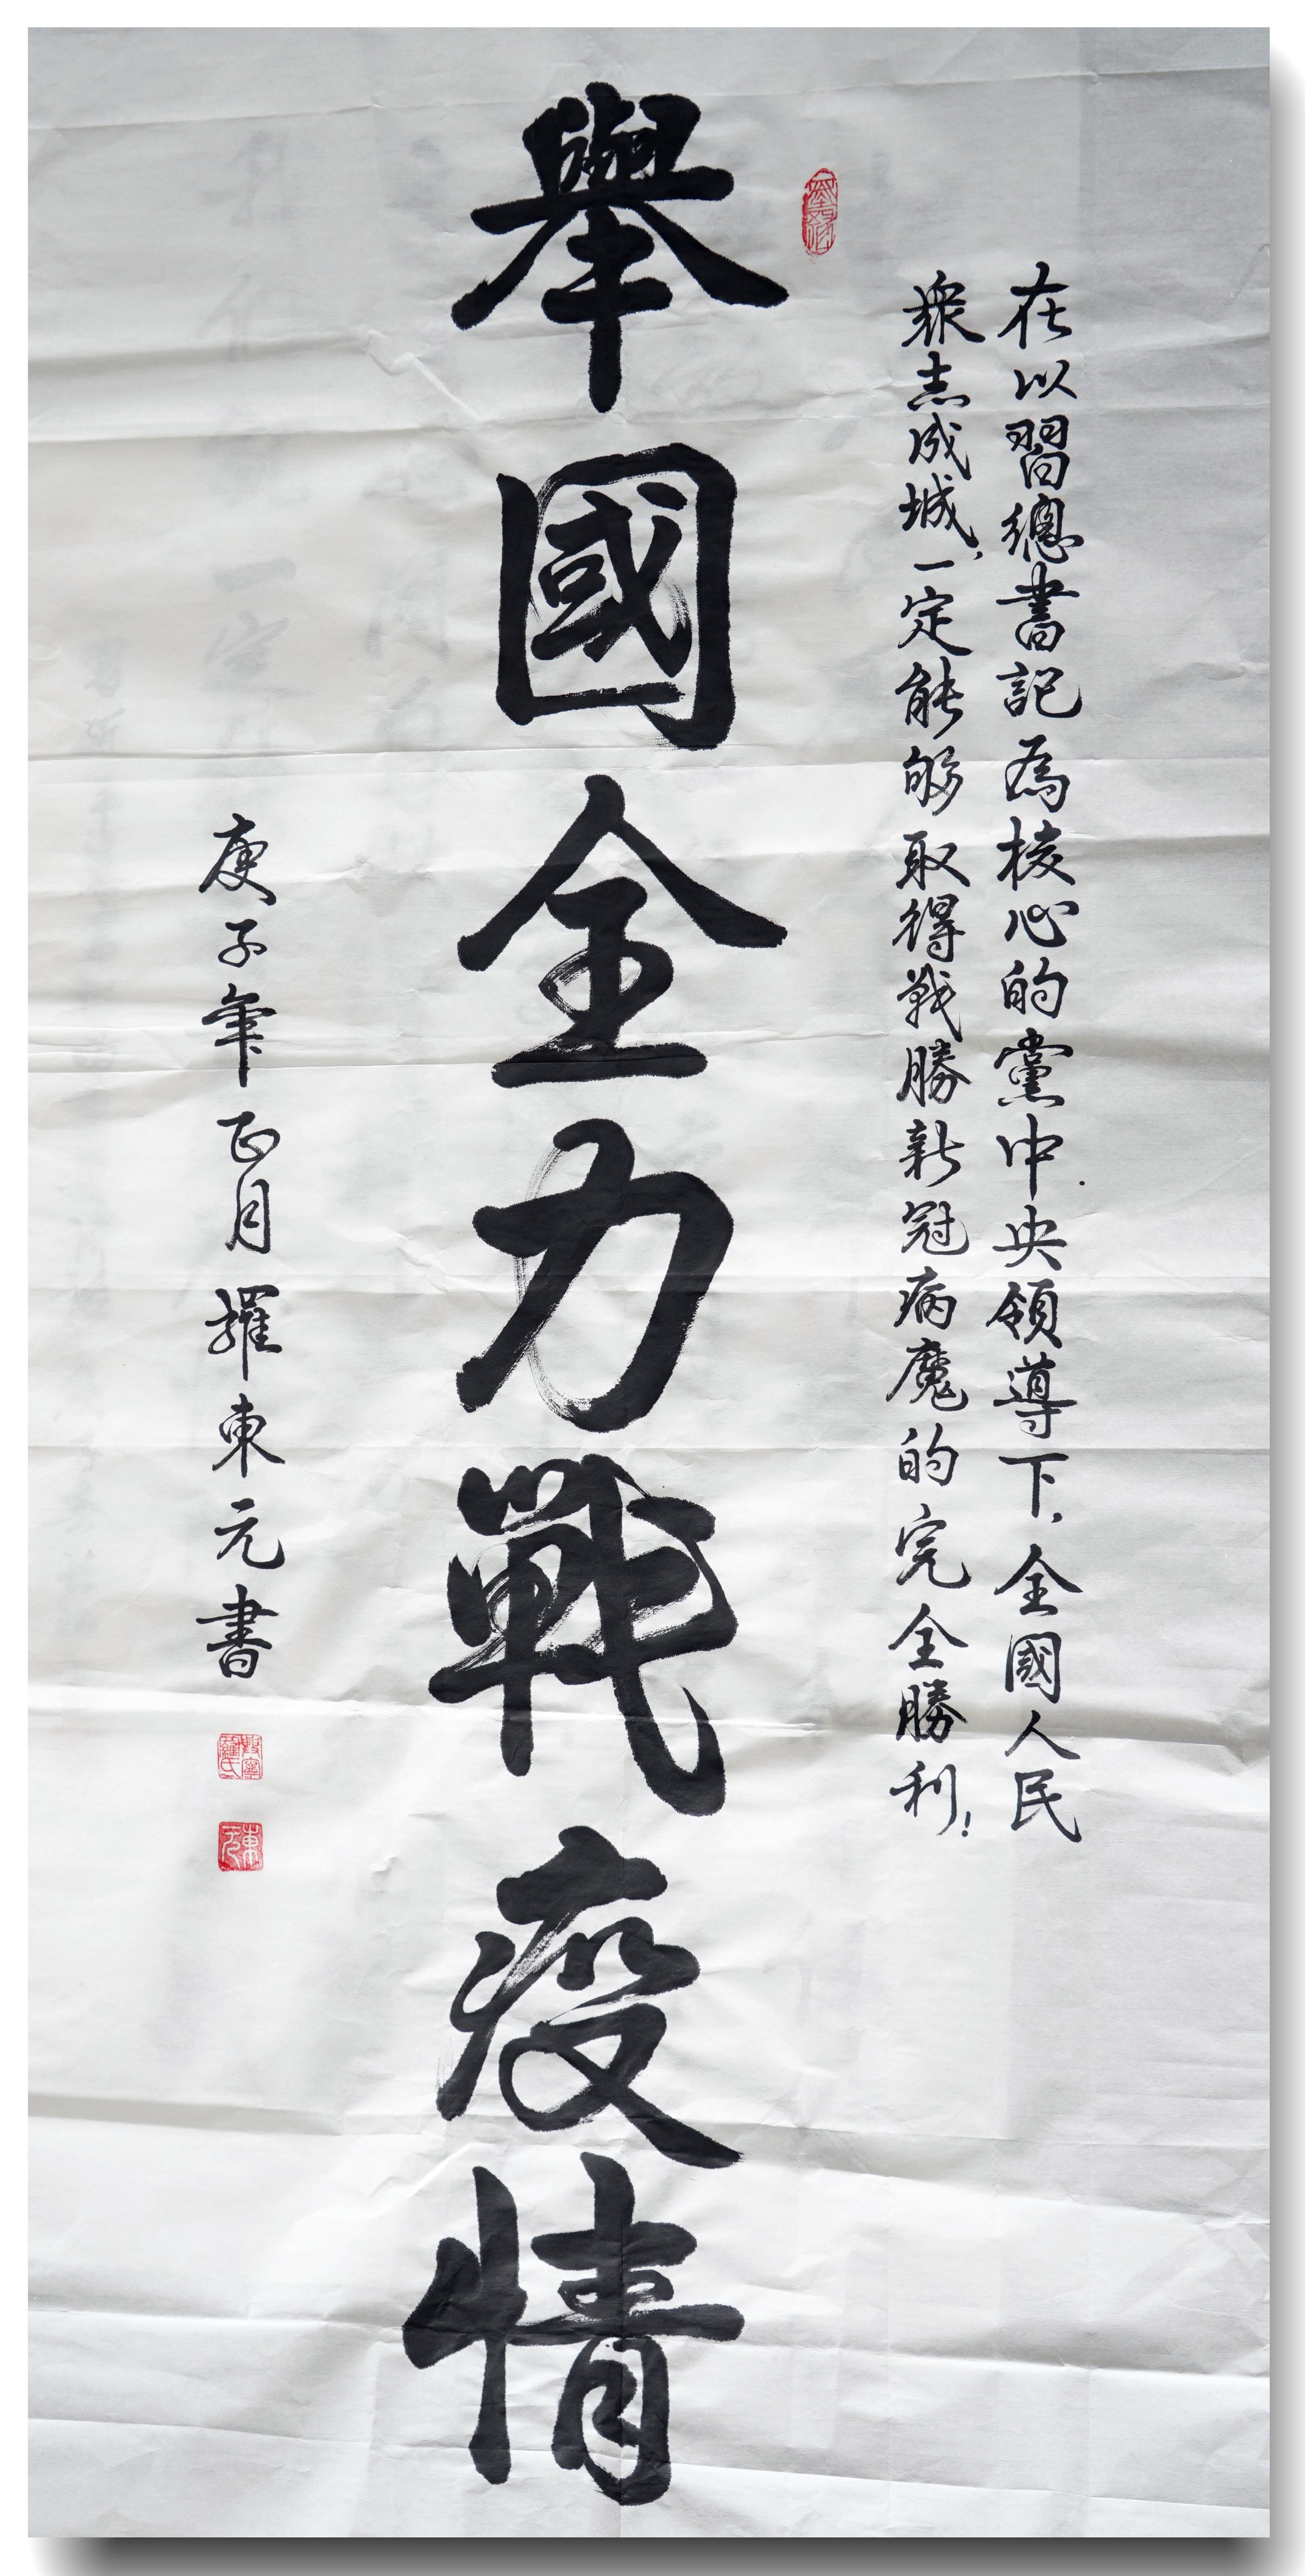 在以習總書記為核心的黨中央領導下，全國人民
衆志成城，一定能够取得戰勝新冠病魔的完全勝利！
舉國全力戰疫情
庚子年正月羅東元書
東元